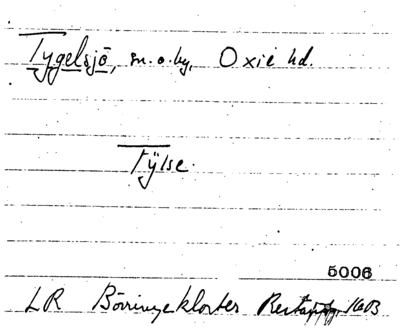 Tygelsjö, sn. o. by, Oxie hd.
Tÿlse.
5006
LR Börringekloster 1603